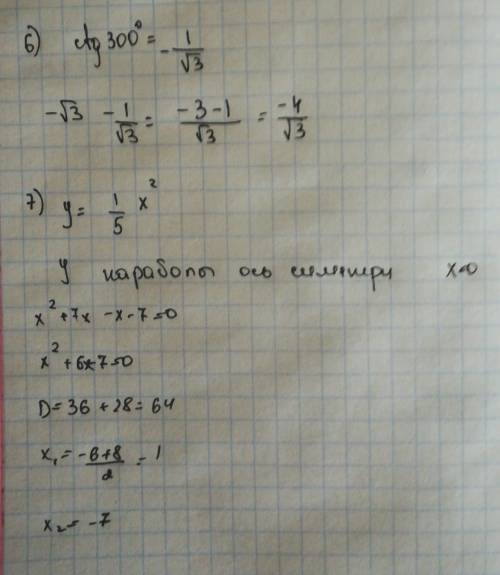 6) ctg 300° = -1/√3
-√3 -1/√3 = (-3-1)/√3 = -4/√3
7) y = 1/5 x²
У параболы ось симметри x=0
x² + 7x - x - 7 = 0
x² + 6x - 7 = 0
D = 36 + 28 = 64
x₁ = (-6+8)/2 = 1
x₂ = -7